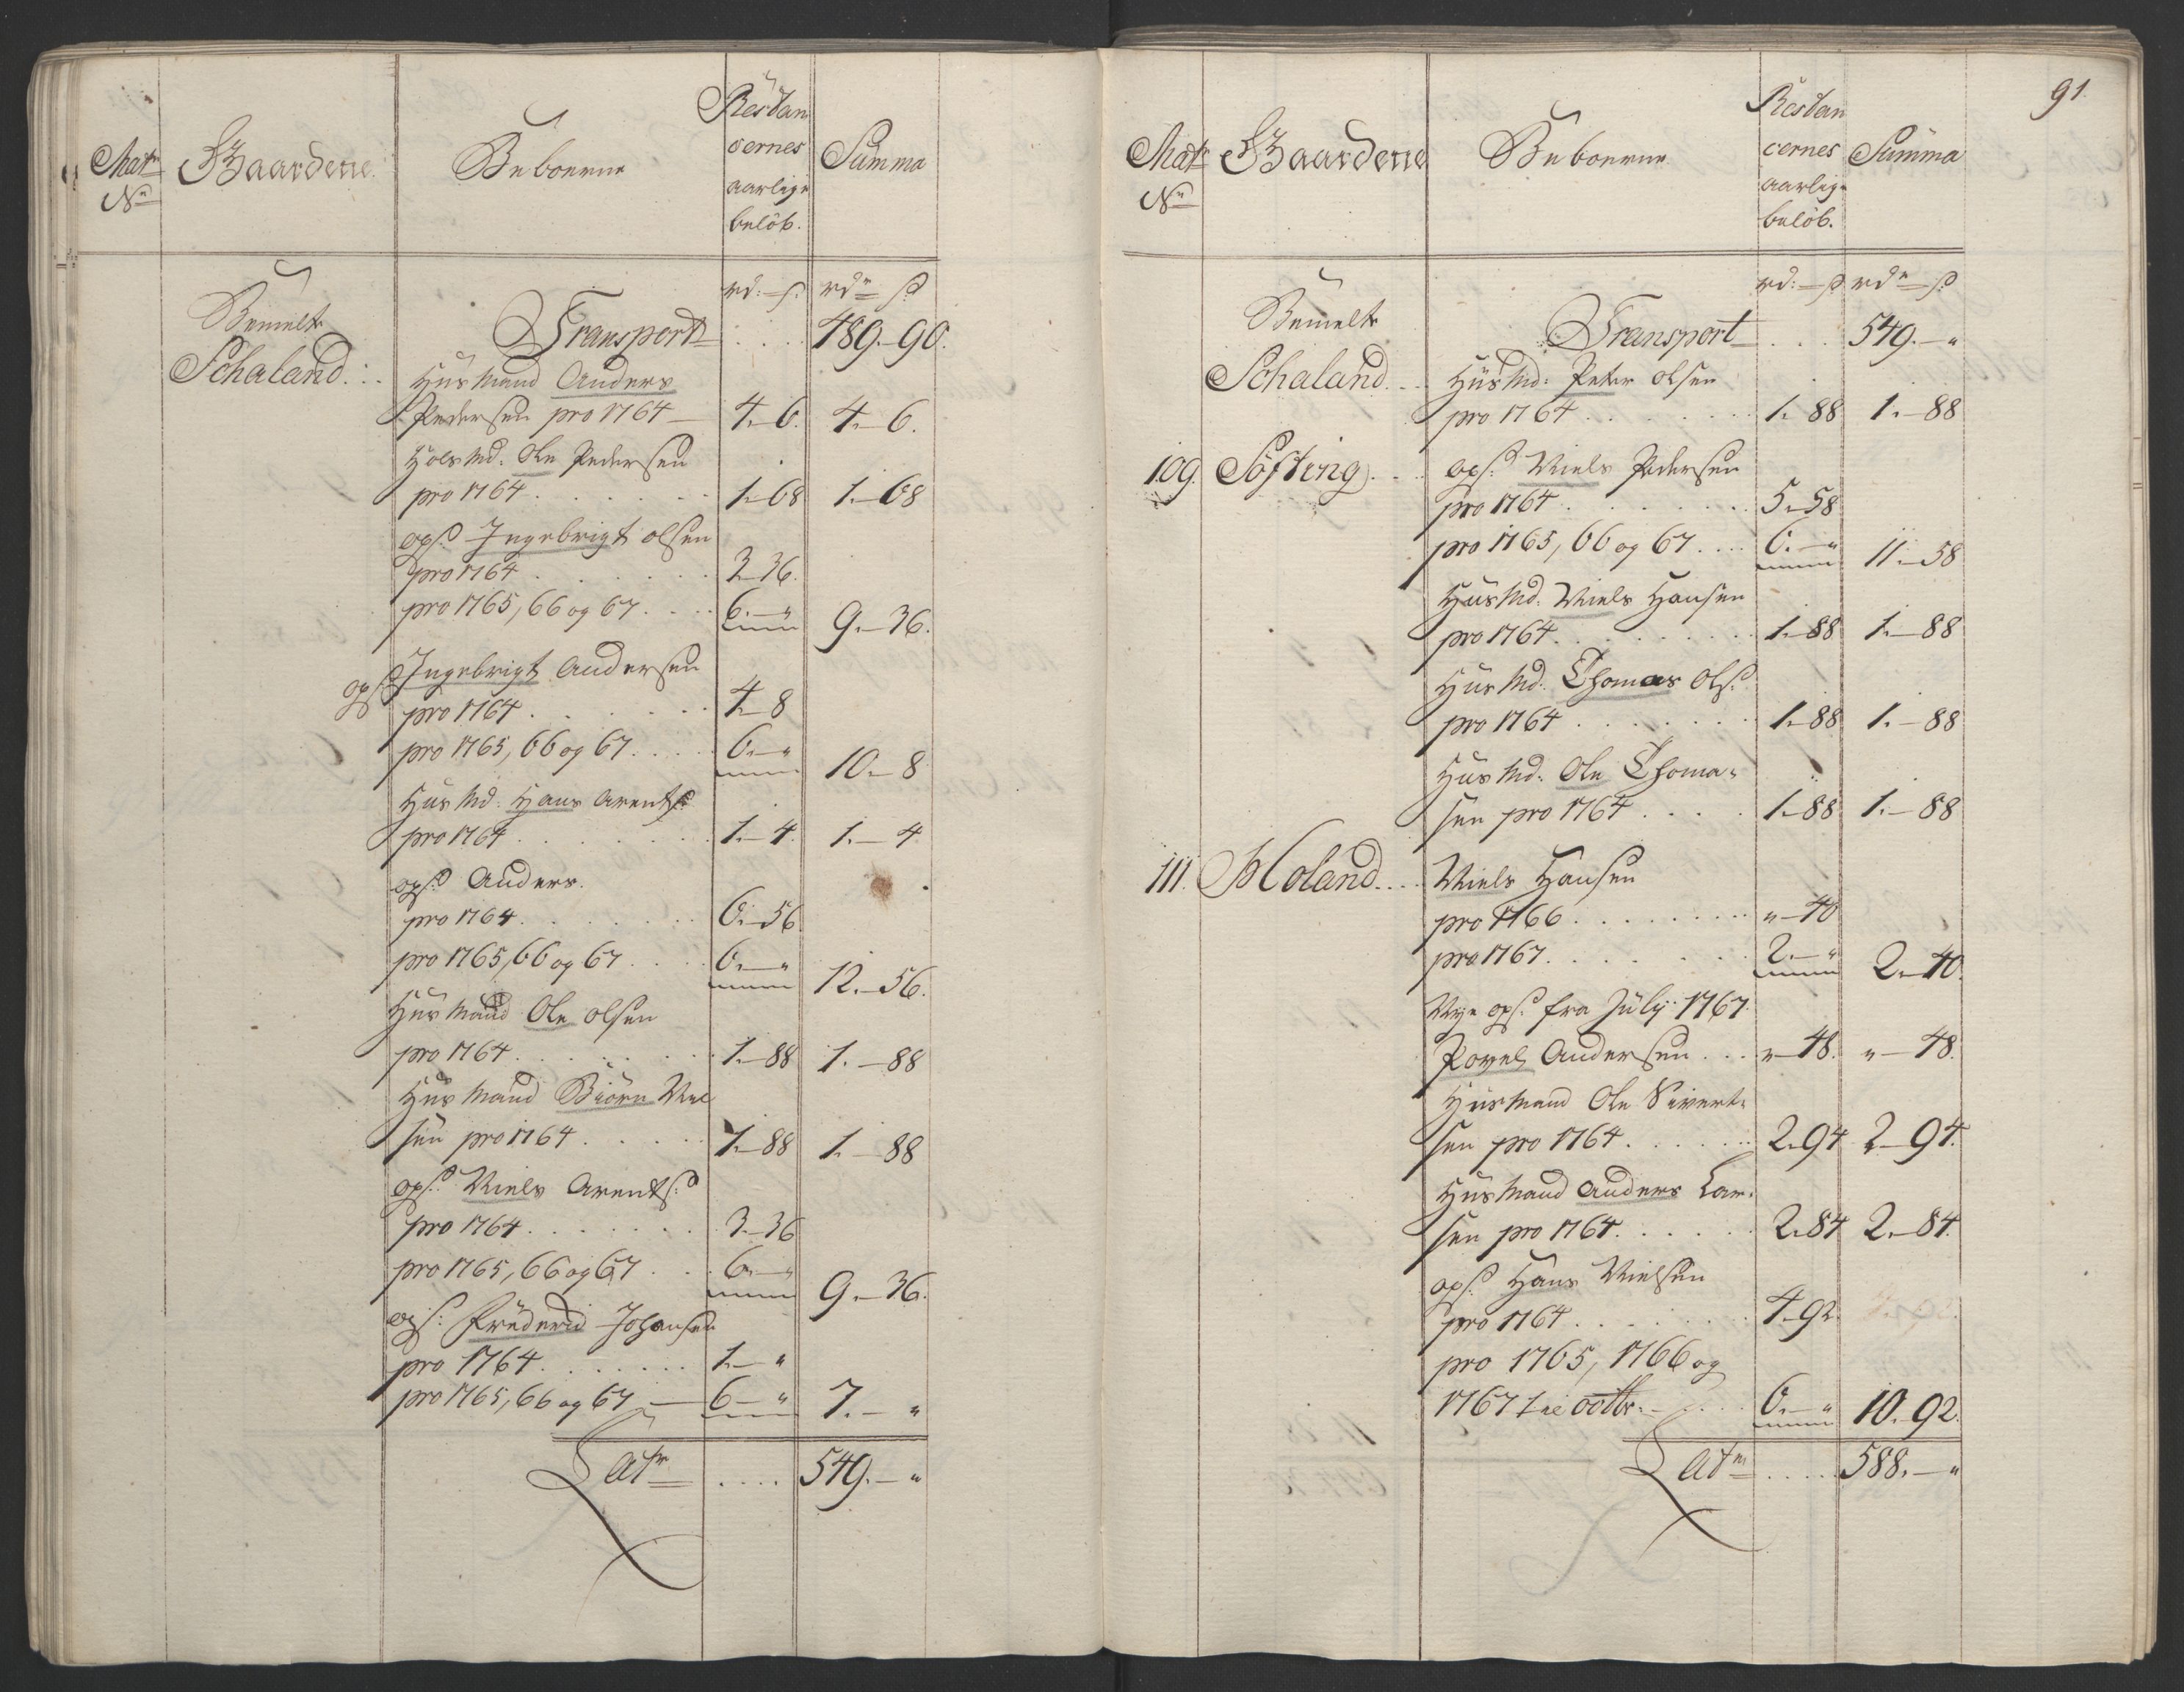 Matr
No
Gaardene
Beboerne
Restan
cernes
aarlige
belöb.
Summa
rd: ß. rdr ß
Bemelte
Schaland...
Transport . . . . 489.-90.
Huusmand Anders
Pedersen pro 1764 — 4.-6. 4.-6.
Ole Pedersen
pro 1764 . . . . . . . 1.-68 1.-68
ops. Ingebrigt olsen
pro 1764 . . . . . . . 3.-36.
pro 1765, 66 og 67 . . . . 6.-" 9.-36.
ops. Ingebrigt Andersen
pro 1764 . . . . . . . 4.-8
pro 1765, 66 og 67 . . . . 6.-" 10.-8
Huusmd: Hans Arents:
pro 1764 . . . . . . . 1.-4. 1.-4
ops. Anders.
pro 1764 . . . . . . . 6.-56
pro 1765, 66 og 67 . . . . 6.-" 12.-56.
Huusmand Ole olsen
pro 1764 . . . . . . . 1.-88 1.-88
Huusmand Biörn Niel
sen pro 1764 . . . . . 1.-88 1.-88
ops. Niels Arents:
pro 1764 . . . . . . . 3.-36
pro 1765, 66 og 67 . . . 6.-" 9.-36.
ops: Friderich Johansen
pro 1764 . . . . . . . 1.-"
pro 1765, 66 og 67 — 6-" 7.-"
Latr . . . . 549.-"
91.
Matr
No
Gaardene
Beboerne
Restan
cernes
aarlige
belöb.
Summa
rd: ß rdr ß
Bemelte
Schaland...
Transport . . . 549.-"
Huusmd: Peter olsen
pro 1764 . . . . . . . 1.-88 1.-88
109. Söfting . . . ops. Niels Pedersen
pro 1764 . . . . . . . 5.-58
pro 1765, 66 og 67 . . . . 6.-" 11.-58
Huusmd. Niels Hansen
pro 1764 . . . . . . . 1.-88 1.-88
Huusmd: Thomas Ols:
pro 1764 . . . . . . . 1.-88 1.-88
Huusmd: Ole Thoma-
sen pro 1764 . . . . 1.-88 1.-88
111. Holand . . . . Niels Hansen
pro 1766 . . . . . . . "-40
pro 1767 . . . . . . . 2.-" 2.-40.
Nye ops. fra July 1767
Povel Andersen . . . "-48. "-48.
Huusmand Ole Sivert-
sen pro 1764 . . . . . . 2.94 2-94.
Huusmand Anders Lar-
sen pro 1764 . . . . . . 2.84 2.-84.
ops. Hans Nielsen
pro 1764 . . . . . . . 4.-92.
pro 1765, 1766 og
1767 octbr. . . . . . 6.-" 10.-92.
Latr . . . . 588.-"